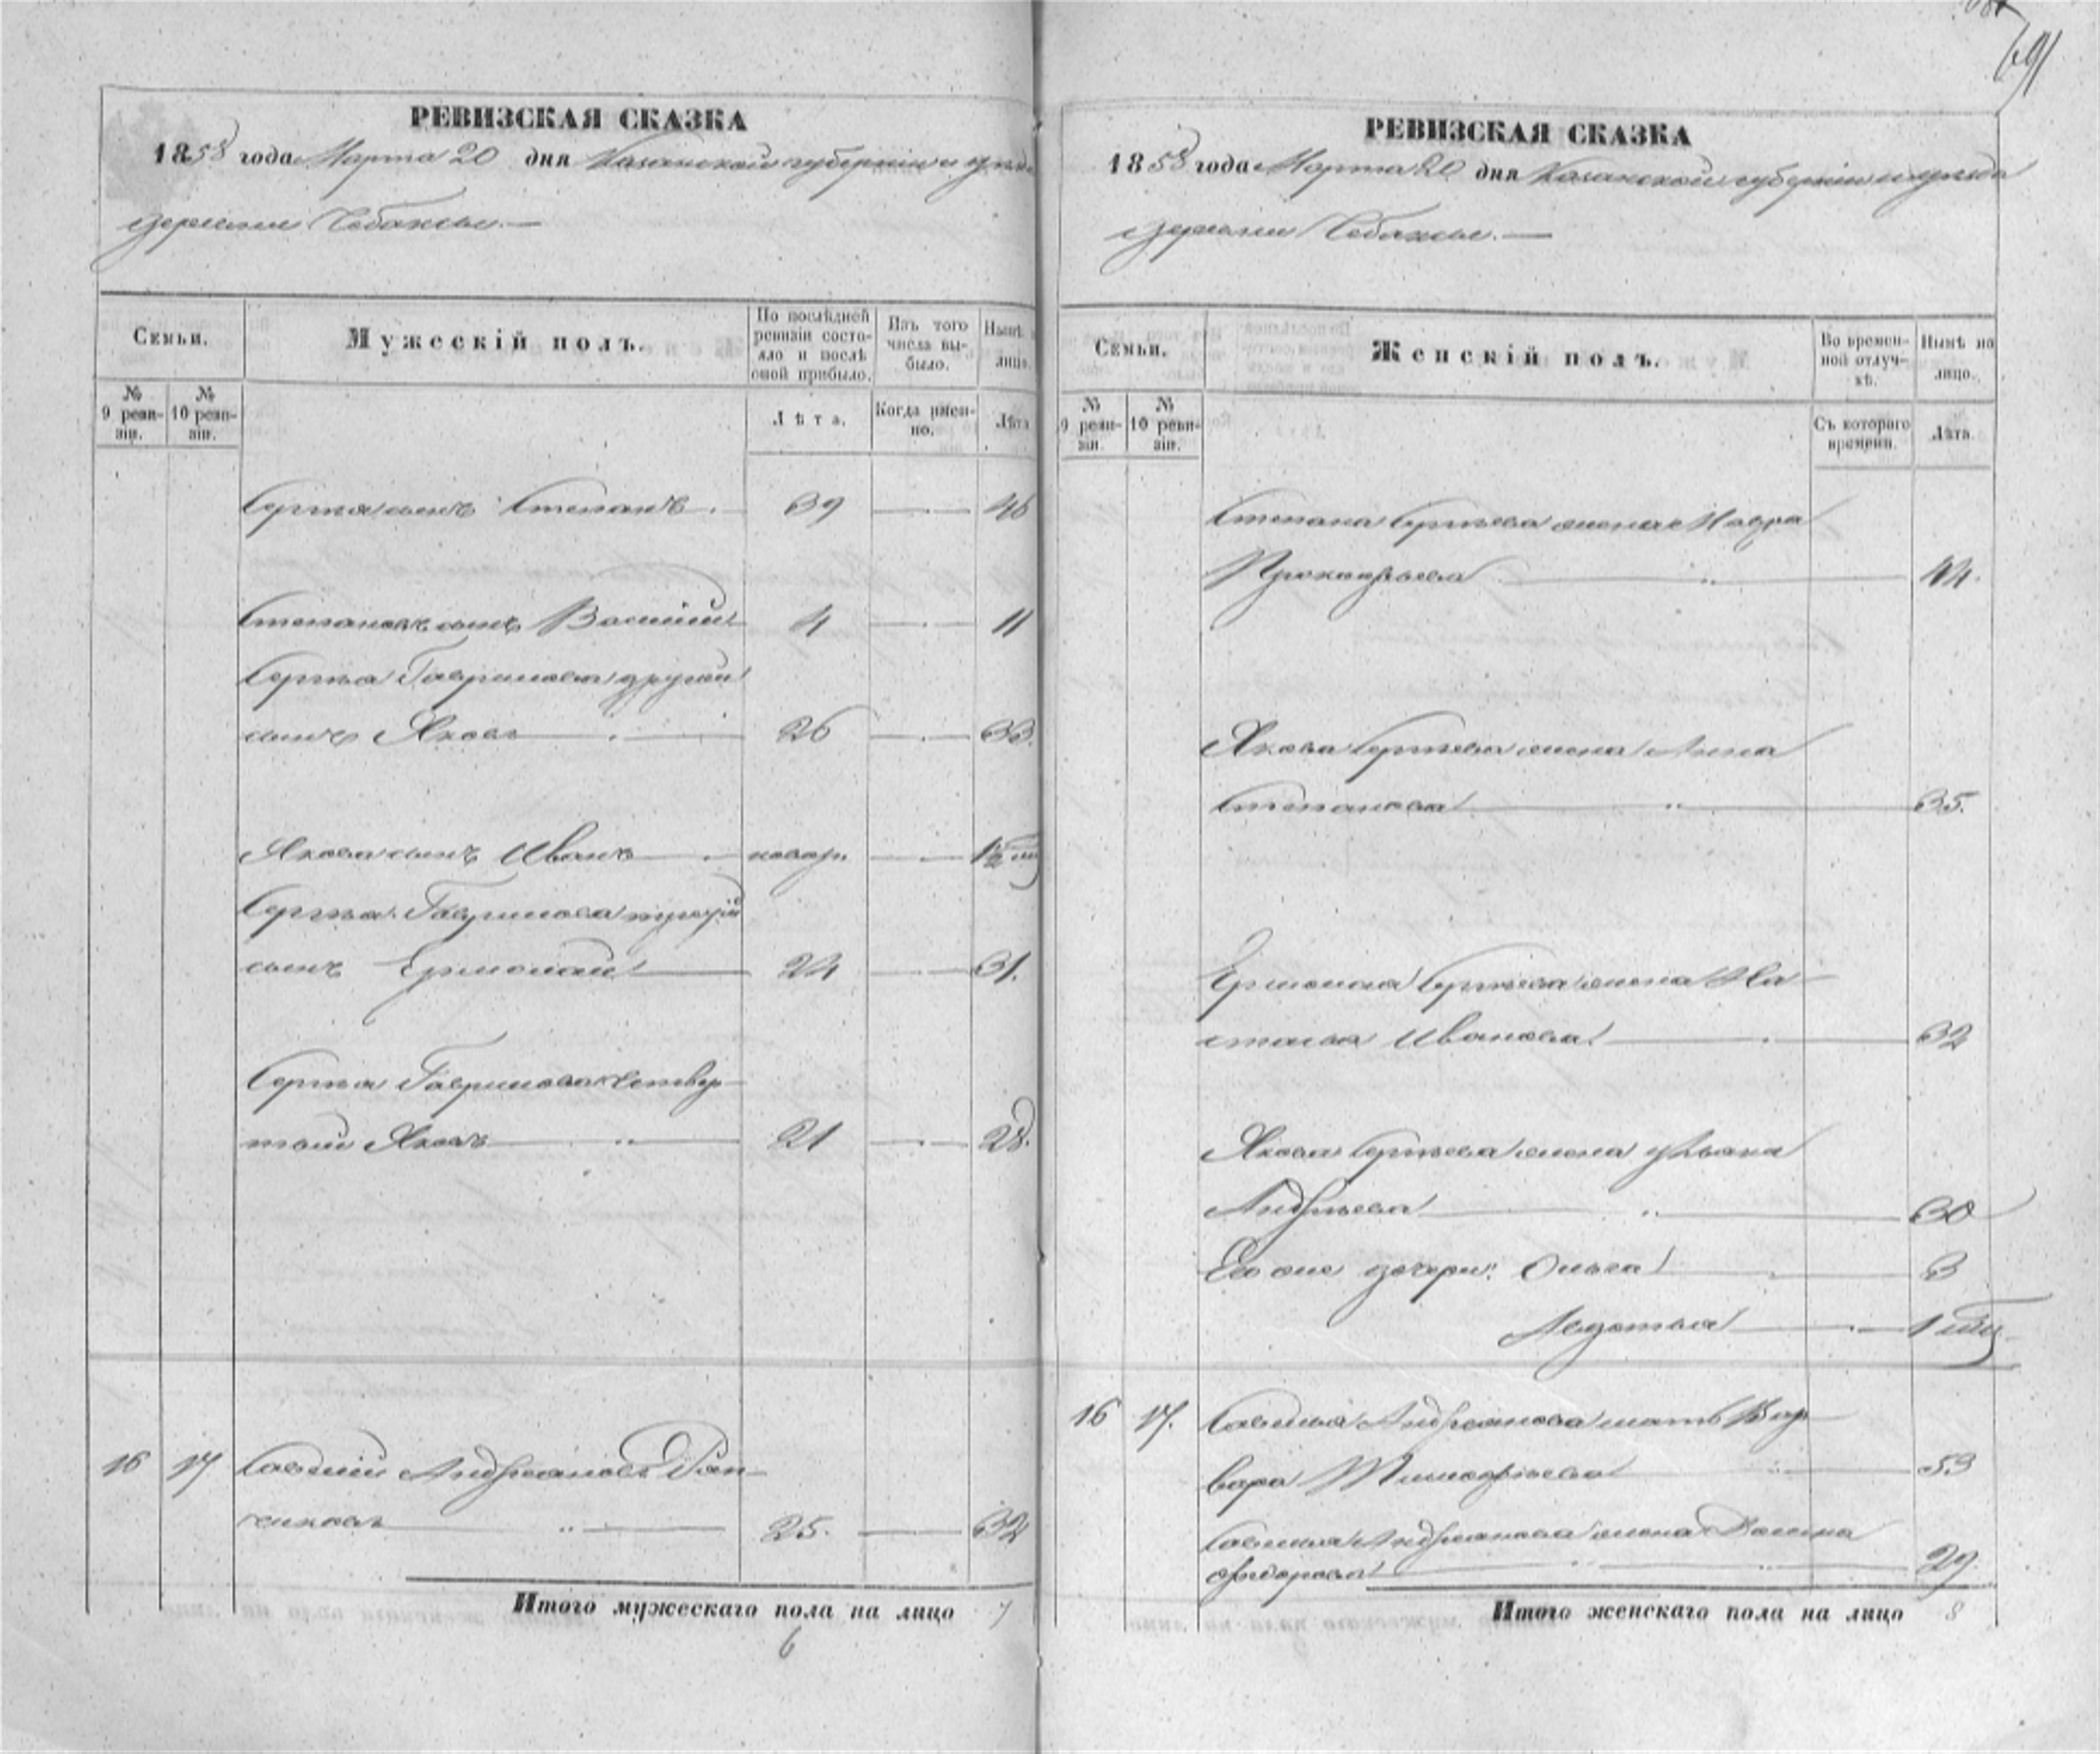 691
РЕВИЗСКАЯ СКАЗКА
1858 года Марта 20 дня Казанской губернии и уезда
деревни Чебаксы.—
Семьи.
Мужескій полъ.
По послѣдней ревизіи состояло и послѣ оной прибыло.
Изъ того числа выбыло.
Нынѣ
лицо.
№ 9 ревизіи.
№ 10 ревизіи.
Лѣта.
Когда именно.
Лѣта
Сергѣя сынъ Степанъ 39 — 46
Степановъ сынъ Василий 4 — 11
Сергѣя Гаврилова другой
сынъ Яковъ 26 — 33.
Якова сынъ Иванъ новор. — 1½
Сергѣя Гаврилова третій
сынъ Ермолай 24 — 31.
Сергѣя Гаврилова четвер-
тый Яковъ 21 — 28.
16 17 Савелий Андреяновъ
25. — 32
Итого мужескаго пола на лицо 7
6
РЕВИЗСКАЯ СКАЗКА
1858 года Марта 20 дня Казанской губерніи и уезда
деревни Чебаксы.—
Семьи.
Женскій полъ.
Во временной отлучкѣ.
Нынѣ на лицо.
№ 9 ревизіи.
№ 10 ревизіи.
Съ котораго времени.
Лѣта.
Степана Сергѣева жена Мавра
Прокофьева 44.
Якова Сергѣева жена Анна
Степанова 35.
Ермолая Сергѣева жена На-
талья Иванова 32
Якова Сергѣева жена Ульяна
Андрѣева 30
Его же дочери: Ольга 3
Авдотья 1
16 17. Савелья Андреянова мать Вар-
вара Тимофѣева 53
Савелья Андреянова жена
Федорова 29.
Итого женскаго пола на лицо 8